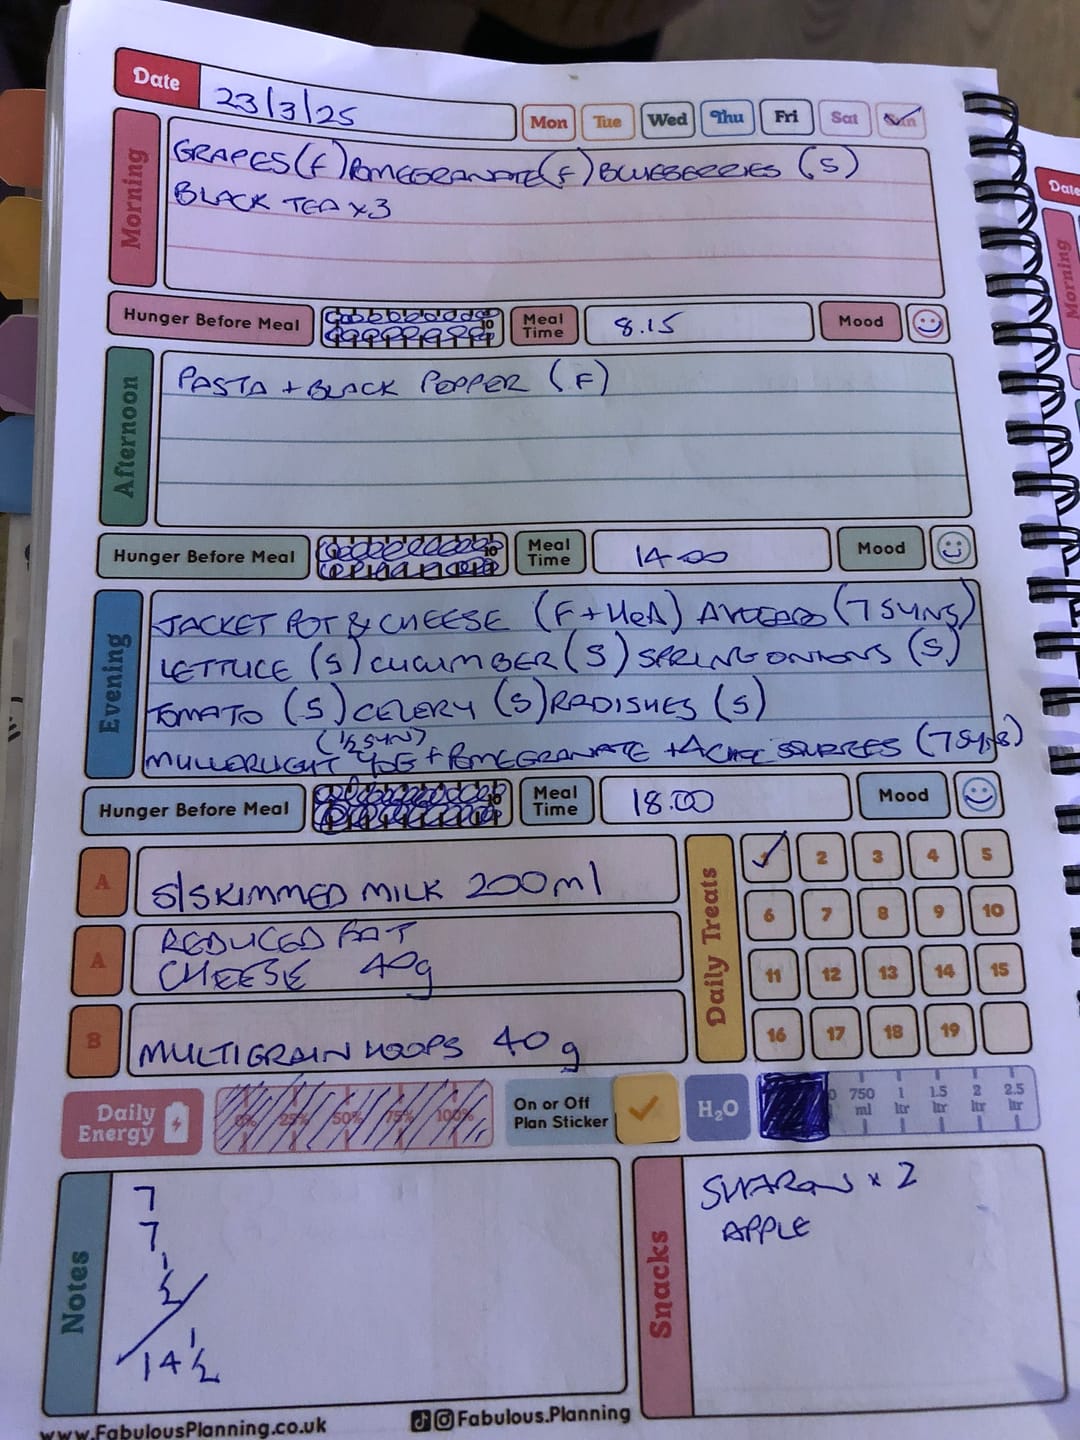 Date 23/3/25 Mon Tue Wed Thu Fri Sat Sun
Morning
GRAPES (F) POMEGRANATE (F) BLUEBERRIES (S)
BLACK TEA x3
Hunger Before Meal 10 Meal Time 8.15 Mood
Afternoon
PASTA + BLACK PEPPER (F)
Hunger Before Meal 10 Meal Time 14.00 Mood
Evening
JACKET POT & CHEESE (F + HeA) AVOCADO (7 SYNS)
LETTUCE (S) CUCUMBER (S) SPRING ONIONS (S)
TOMATO (S) CELERY (S) RADISHES (S)
(½ SYN)
MULLERLIGHT YOG + POMEGRANATE + 4 CHOC SQUARES (7 SYNS)
Hunger Before Meal 10 Meal Time 18.00 Mood
A S/SKIMMED MILK 200ml
A REDUCED FAT
CHEESE 40g
B MULTIGRAIN HOOPS 40g
Daily Treats
1 2 3 4 5
6 7 8 9 10
11 12 13 14 15
16 17 18 19
Daily Energy 0% 25% 50% 75% 100%
On or Off Plan Sticker
H₂O 750 ml 1 ltr 1.5 ltr 2 ltr 2.5 ltr
Notes
7
7
½
14 ½
Snacks
SHARON x 2
APPLE
www.FabulousPlanning.co.uk
Fabulous.Planning
Date
Morning